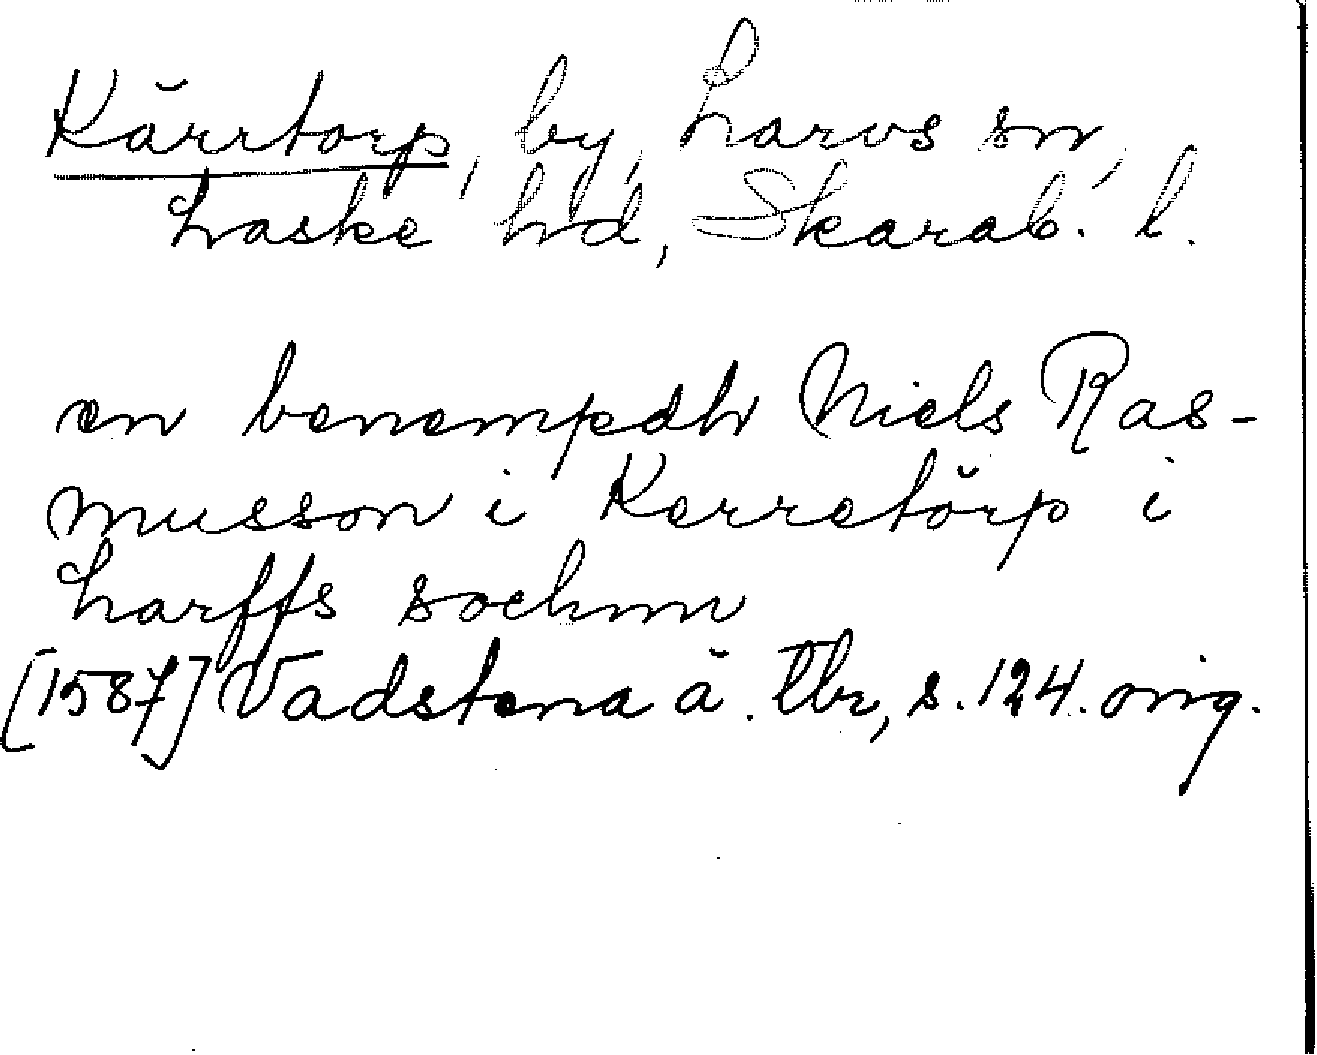 Kärrtorp, by, Larvs sn,
Laske hd, Skarab. l.
en benempdh Niels Ras-
musson i Kerretörp i
Larffs sochnn
[1587] Vadstena ä. tbr, s. 124. orig.